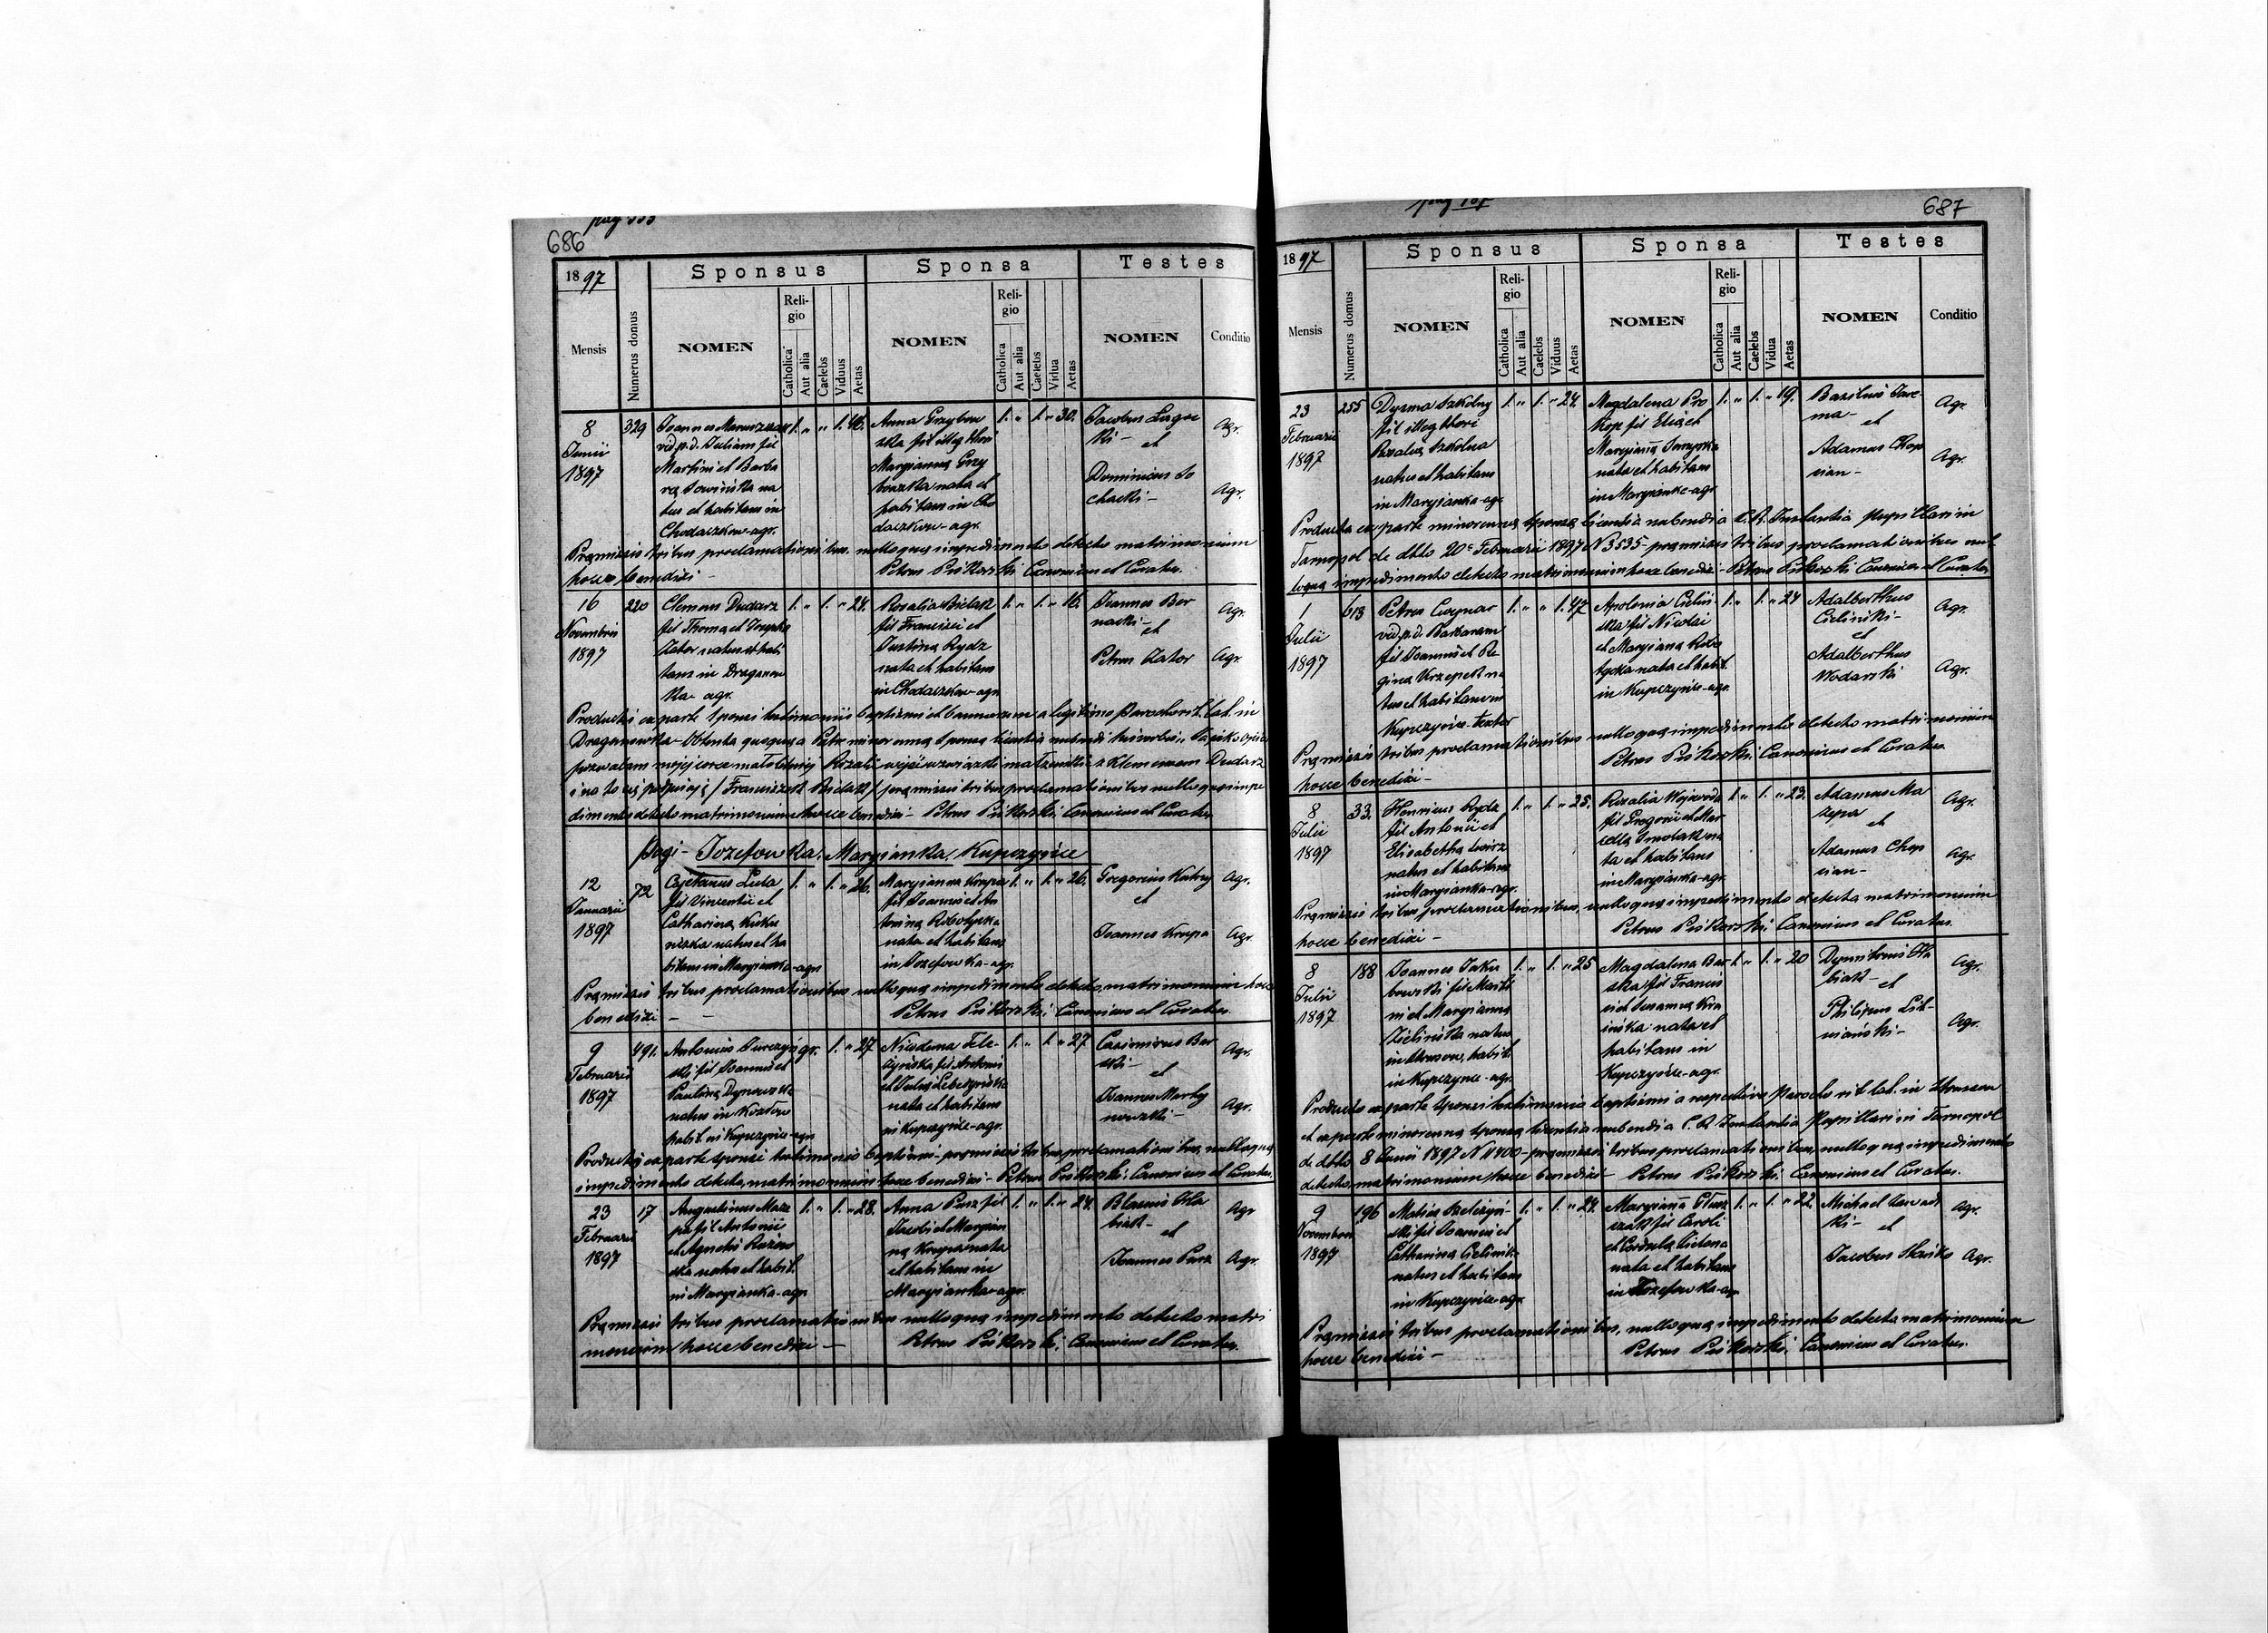 686
1897
Sponsus Sponsa Testes
Mensis
Numerus domus
NOMEN
Religio
Catholica
Aut alia
Caelebs
Viduus
Aetas
NOMEN
Religio
Catholica
Aut alia
Caelebs
Vidua
Aetas
NOMEN
Conditio
8
Junii
1897
329
Joannes
vid. p. d. Julian fil
Martini et Barba
natus et habitans in
Chodaczkow-agr.
1. „ „ 1. 46.
Anna Grzybow
ska fil illeg thori
Maryanna Grzy
bowska nata et
habitans in Cho
daczkow-agr.
1. „ 1. „ 30.
et
Dominicus So
chacki-
Agr.
Agr.
Præmissis tribus proclamationibus nulloque impedimento detecto matrimonium
hocce benedixi - Petrus Piśkorski Canonicus et Curatus.
16
Novembris
1897
220
Clemens Dudarz
fil Thomæ et Josepha
Zator natus et habi
tans in Draganow
ka-agr.
1. „ 1. „ 24.
Rosalia Bidak
fil Francisci et
Justina Rydz
nata et habitans
in Chodaczkow-agr
1. „ 1. „ 16.
Joannes Ber
nacki-
et
Petrus Zator
Agr.
Agr.
Producti ex parte sponsi testimonii baptismi et bannorum a legitimo Parocho rit. lat. in
Draganowka-Obtenta quoque a Patre minorennæ sponsæ licentia nubendi his verbis
pozwalam mojej córce małoletniej Rozalii wejść w związki małżeńskie z Klemensem Dudarz
i na to się podpisuję / Franciszek Bidak / præmissis tribus proclamationibus nulloque impe
dimento detecto matrimonium hocce benedixi - Petrus Piśkorski Canonicus et Curatus
Pagi - Jozefowka, Maryanka, Kupczyńce
12
Januarii
1897
72
Cajetanus Luba
fil Vincentii et
Catharina
natus et ha
bitans in Maryanka-agr
1. „ 1. „ 26.
Maryanna Krupa
fil Joannis et An
tonina Robotycka
nata et habitans
in Jozefowka-agr.
1. „ 1. „ 26.
Gregorius
et
Joannes Krupa
Agr.
Agr.
Præmissis tribus proclamationibus nulloque impedimento detecto, matrimonium hocce
benedixi - - Petrus Piśkorski Canonicus et Curatus.
9
Februarii
1897
491.
Antonius Purczyń
ski fil Joannis et
Paulina Dynowska
natus in Kozłow
habit. in Kupczyńce-agr
gr. 1. „ 27
Nicodema
fil Antonii
nata et habitans
in Kupczyńce-agr.
1. „ 1. „ 27
Casimirus Ber
ski-
et
Joannes Marty
nowski-
Agr.
Agr.
Producto ex parte sponsi testimonio baptismi-præmissis tribus proclamationibus, nulloque
impedimento detecto, matrimonium hocce benedixi - Petrus Piśkorski Canonicus et Curatus.
23
Februarii
1897
17
Augustinus Maze
pa fil Antonii
et Agnetis
natus et habit.
in Maryanka-agr
1. „ 1. „ 28.
Anna Pusz fil
et Maryan
na Krupa nata
et habitans in
Maryanka-agr.
1. „ 1. „ 24.
Blasius Ska
biak-
et
Joannes Pusz
Agr
Agr.
Præmissis tribus proclamationibus nulloque impedimento detecto matri
monium hocce benedixi - Petrus Piśkorski Canonicus et Curatus.
687
1897
Sponsus Sponsa Testes
Mensis
Numerus domus
NOMEN
Religio
Catholica
Aut alia
Caelebs
Viduus
Aetas
NOMEN
Religio
Catholica
Aut alia
Caelebs
Vidua
Aetas
NOMEN
Conditio
23
Februarii
1897
255
Dyzma Szkolny
fil illeg thori
Rosalia Szkolna
natus et habitans
in Maryanka-agr
1. „ 1. „ 24.
Magdalena Pro
kop fil Eliæ et
Maryanna
nata et habitans
in Maryanka-agr
1. „ 1. „ 19.
Basilius Jare
ma-
et
Adamus Chop
cian-
Agr.
Agr.
Producta ex parte minorennæ sponsæ licentia nubendi a C. R. Instantia Pupillari in
Tarnopol de dtto 20 Februarii 1897 N 3535-præmissis tribus proclamationibus nul
loque impedimento detecto matrimonium hocce benedixi-Petrus Piśkorski Canonicus et Curatus
1
Julii
1897
613
Petrus Cwynar
vid. p. d. Barbaram
fil Joannis et Re
gina Krzepek na
tus et habitans in
Kupczyńce
1. „ „ 1. 47
Apolonia Cieliń
ska fil Nicolai
et Maryanna Robo
tycka nata et habit.
in Kupczyńce-agr.
1. „ 1. „ 24
Adalberthus
Cieliński-
et
Adalberthus
Wodarski
Agr.
Agr.
Præmissis tribus proclamationibus nulloque impedimento detecto matrimonium
hocce benedixi- Petrus Piśkorski Canonicus et Curatus
8
Julii
1897
33.
Henricus Rydz
fil Antonii et
Elisabetha
natus et habitans
in Maryanka-agr.
1. „ 1. „ 25.
Rosalia Wojewoda
fil Gregorii et Mar
cella Smolak na
ta et habitans
in Maryanka-agr.
1. „ 1. „ 23.
Adamus Ma
zepa
et
Adamus Chop
cian-
Agr.
Agr.
Præmissis tribus proclamationibus, nulloque impedimento detecto matrimonium
hocce benedixi - Petrus Piśkorski Canonicus et Curatus.
8
Julii
1897
188
Joannes Jaku
bowski fil Marti
ni et Maryanna
Zielińska natus
habit
in Kupczyńce-agr.
1. „ 1. „ 25
Magdalena Bar
ska fil Francis
ci et Susanna
nata et
habitans in
Kupczyńce-agr.
1. „ 1. „ 20
Dymitrius Ska
biak-
et
Philippus Lit-
wiański-
Agr.
Agr.
Producto ex parte sponsi testimonio baptismi a respectivo Parocho rit lat. in
et ex parte minorennæ sponsæ licentia nubendi a C. R. Instantia Pupillari in Tarnopol
de dtto 8 Junii 1897 N 11400-præmissis tribus proclamationibus, nulloque impedimento
detecto, matrimonium hocce benedixi - Petrus Piśkorski Canonicus et Curatus.
9
Novembris
1897
196
fil Joannis et
Catharina Cielińska
natus et habitans
in Kupczyńce-agr
1. „ 1. „ 24.
Maryanna
fil Caroli
et Cordula Zielona
nata et habitans
in Jozefowka-agr
1. „ 1. „ 22.
Michael Zawadz
ki-
et
Jacobus Hańko
Agr.
Agr.
Præmissis tribus proclamationibus, nulloque impedimento detecto matrimonium
hocce benedixi - Petrus Piśkorski Canonicus et Curatus.